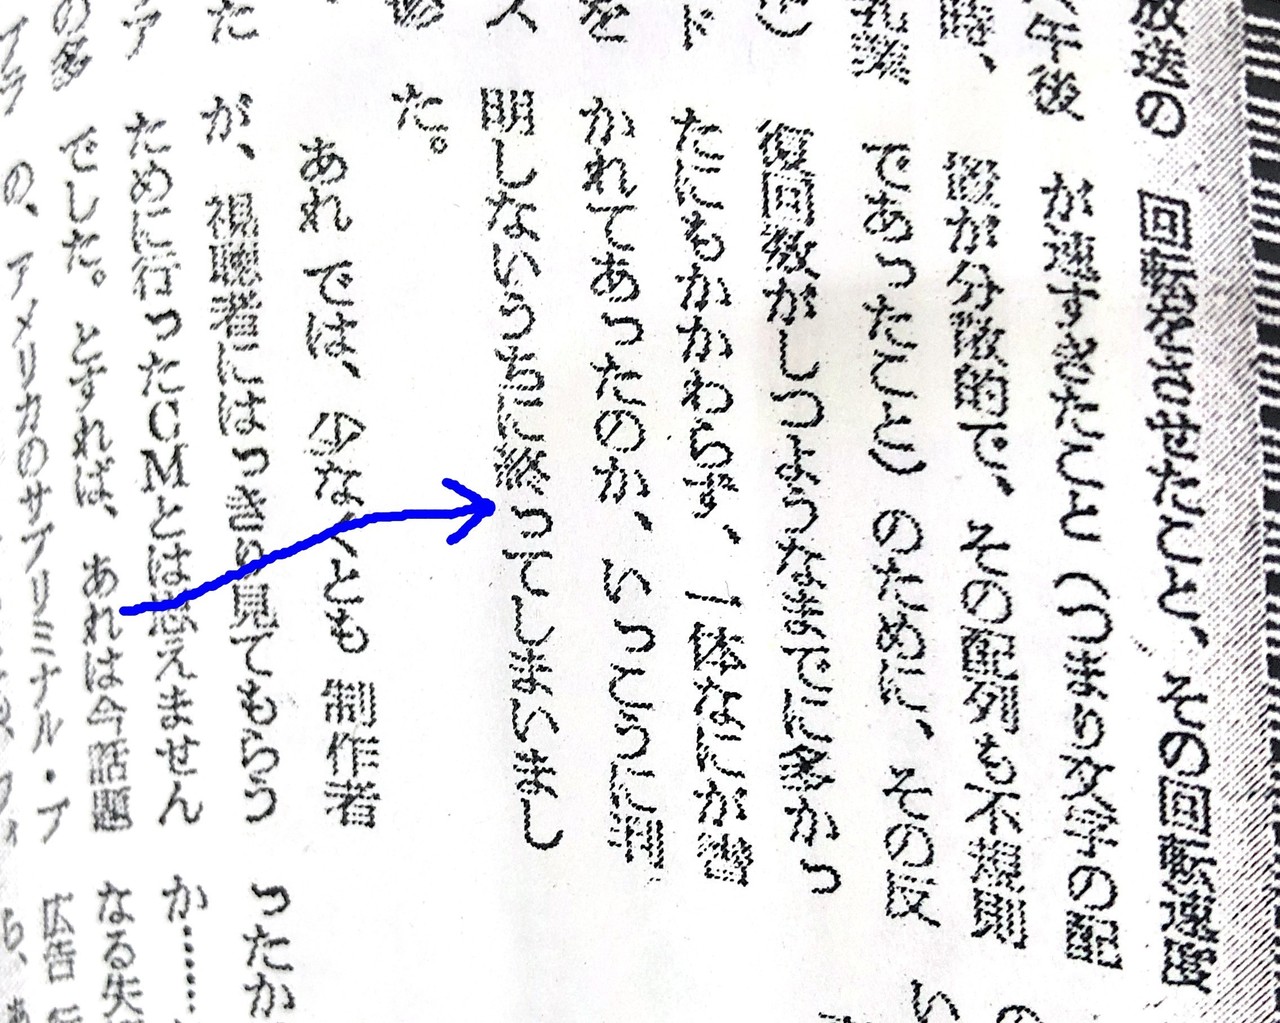 放送の
午後
時、
回転をさせたこと、その回転速度
が速すぎたこと（つまり文字の配
置が分散的で、その配列も不規則
であったこと）のために、その反
復回数がしつようなまでに多かっ
たにもかかわらず、一体なにが書
かれてあったのか、いっこうに判
明しないうちに終ってしまいまし
た。
あれでは、少なくとも制作者
が、視聴者にはっきり見てもらう
ために行ったCMとは思えません
でした。とすれば、あれは今話題
の、アメリカのサブリミナル・ア
ったか
か……
なる失
広告